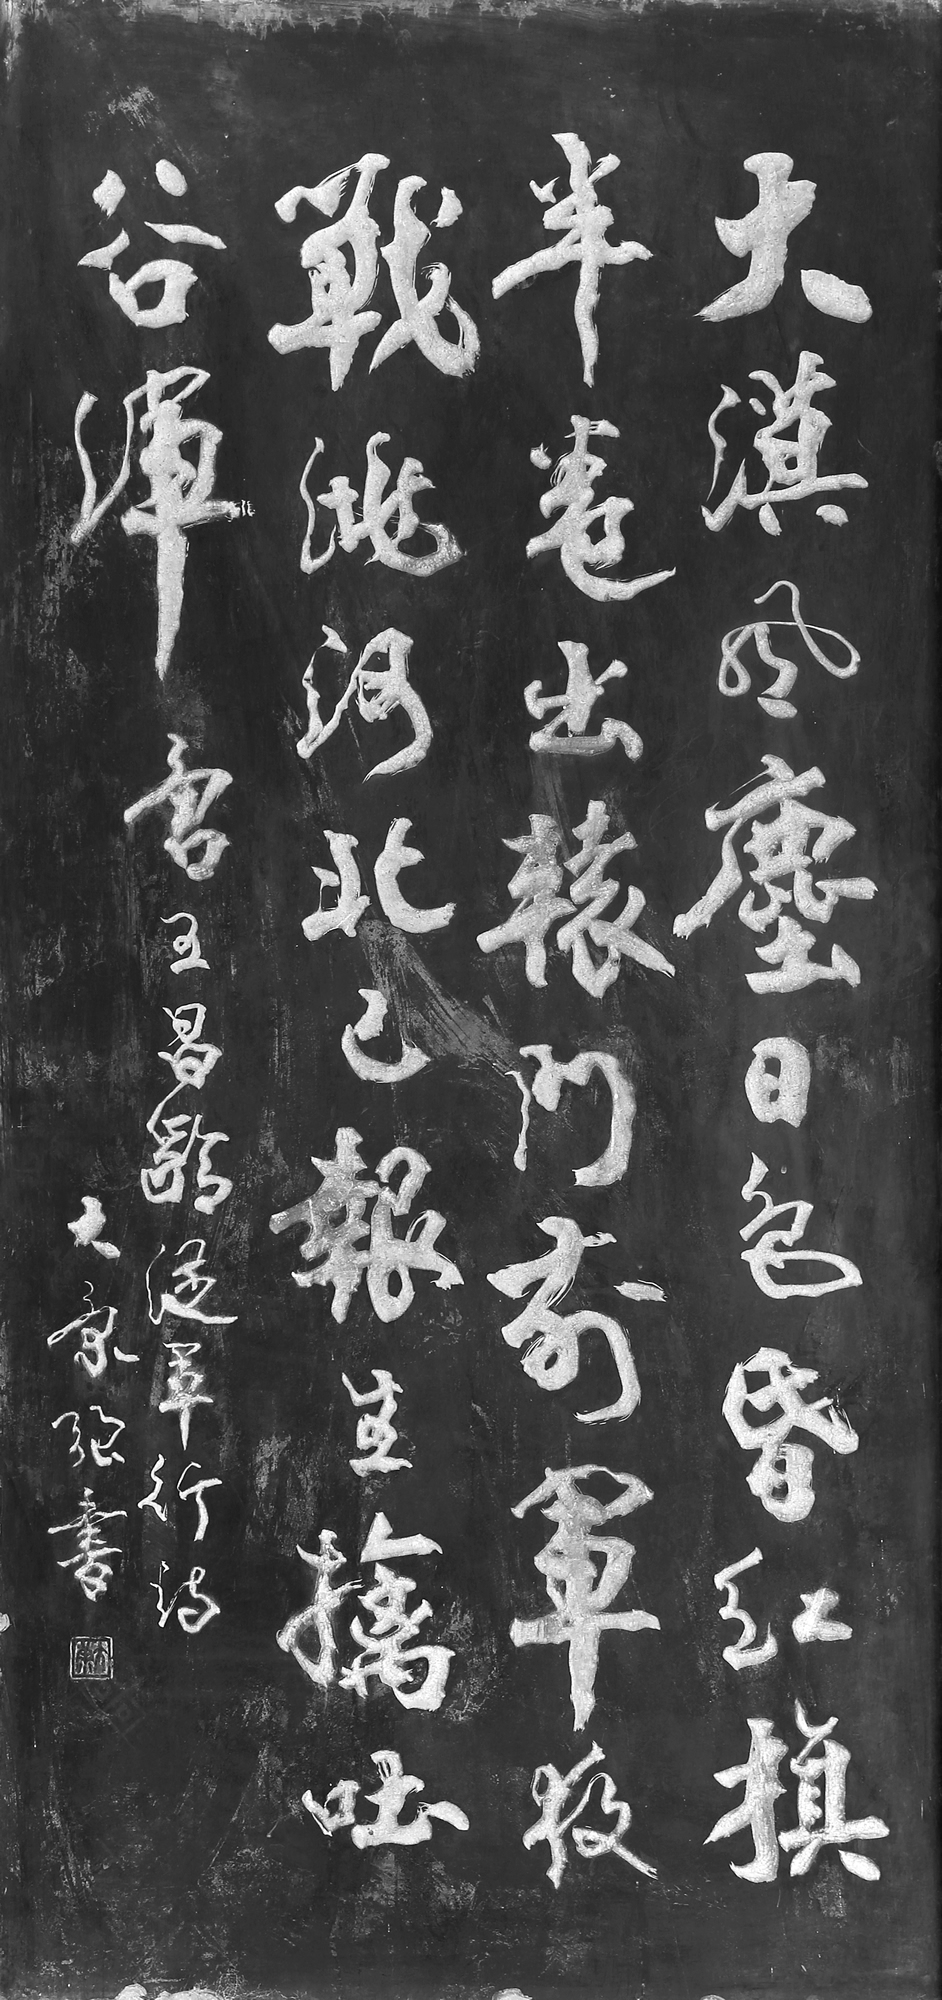 大漠風塵日色昏紅旗
半卷出轅門前軍夜
戰洮河北已報生擒吐
谷渾 書王昌齡從軍行詩
大康 張書